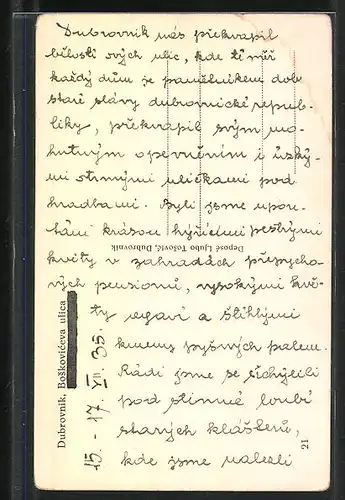 Dubrovnik nás překvapil
bělostí svých ulic, kde téměř
každý dům je památníkem dob
staré slávy dubrovnické repub-
liky, překvapil svým mo-
hutným opevněním i úzký-
mi strmými uličkami pod
hradbami. Byli jsme upou-
táni krásou hýřícími pestrými
květy v zahradách přepycho-
vých pensionů, vysokými kvě-
ty agaví a štíhlými
kmeny pyšných palem.
Rádi jsme se
pod stinné loubí
starých klášterů,
kde jsme nalezli
Depose Ljubo Tošović, Dubrovnik
Dubrovnik, Boškovićeva ulica
15. - 17. VII. 35.
21